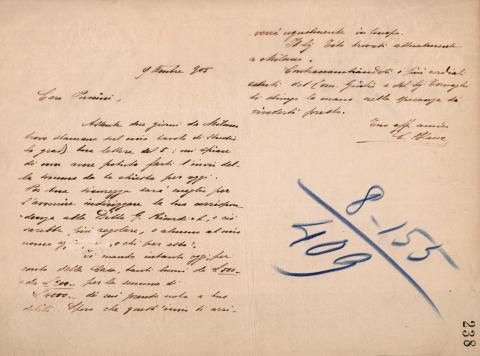 9 8embre 900
Caro Puccini,
Assente due giorni da Milano
trovo stamane sul mio tavolo di studio
la grad.ta tua lettera del 5: mi spiace
di non avere potuto farti l'invio del-
la somma da te chiesta per oggi.
Per tua sicurezza sarà meglio per
l'avvenire indirizzare la tua corrispon-
denza alla Ditta G. Ricordi & C., e ciò
sarebbe più regolare, o almeno al mio
nome e, o chi per esso.
Ti mando intanto oggi, per
conto della Casa, tanti buoni da L.
da L. per la somma di
L. di cui prendo nota a tuo
debito. Spero che quest'invio ti arri-
verà ugualmente in tempo.
Il Sig. Tito trovasi attualmente
a Milano.
Contraccambiandoti i più cordiali
saluti del Com. Giulio e del Sig.
ti stringo la mano nella speranza di
vederti presto.
Tuo aff. amico
C. Blanc
8-155
409
238